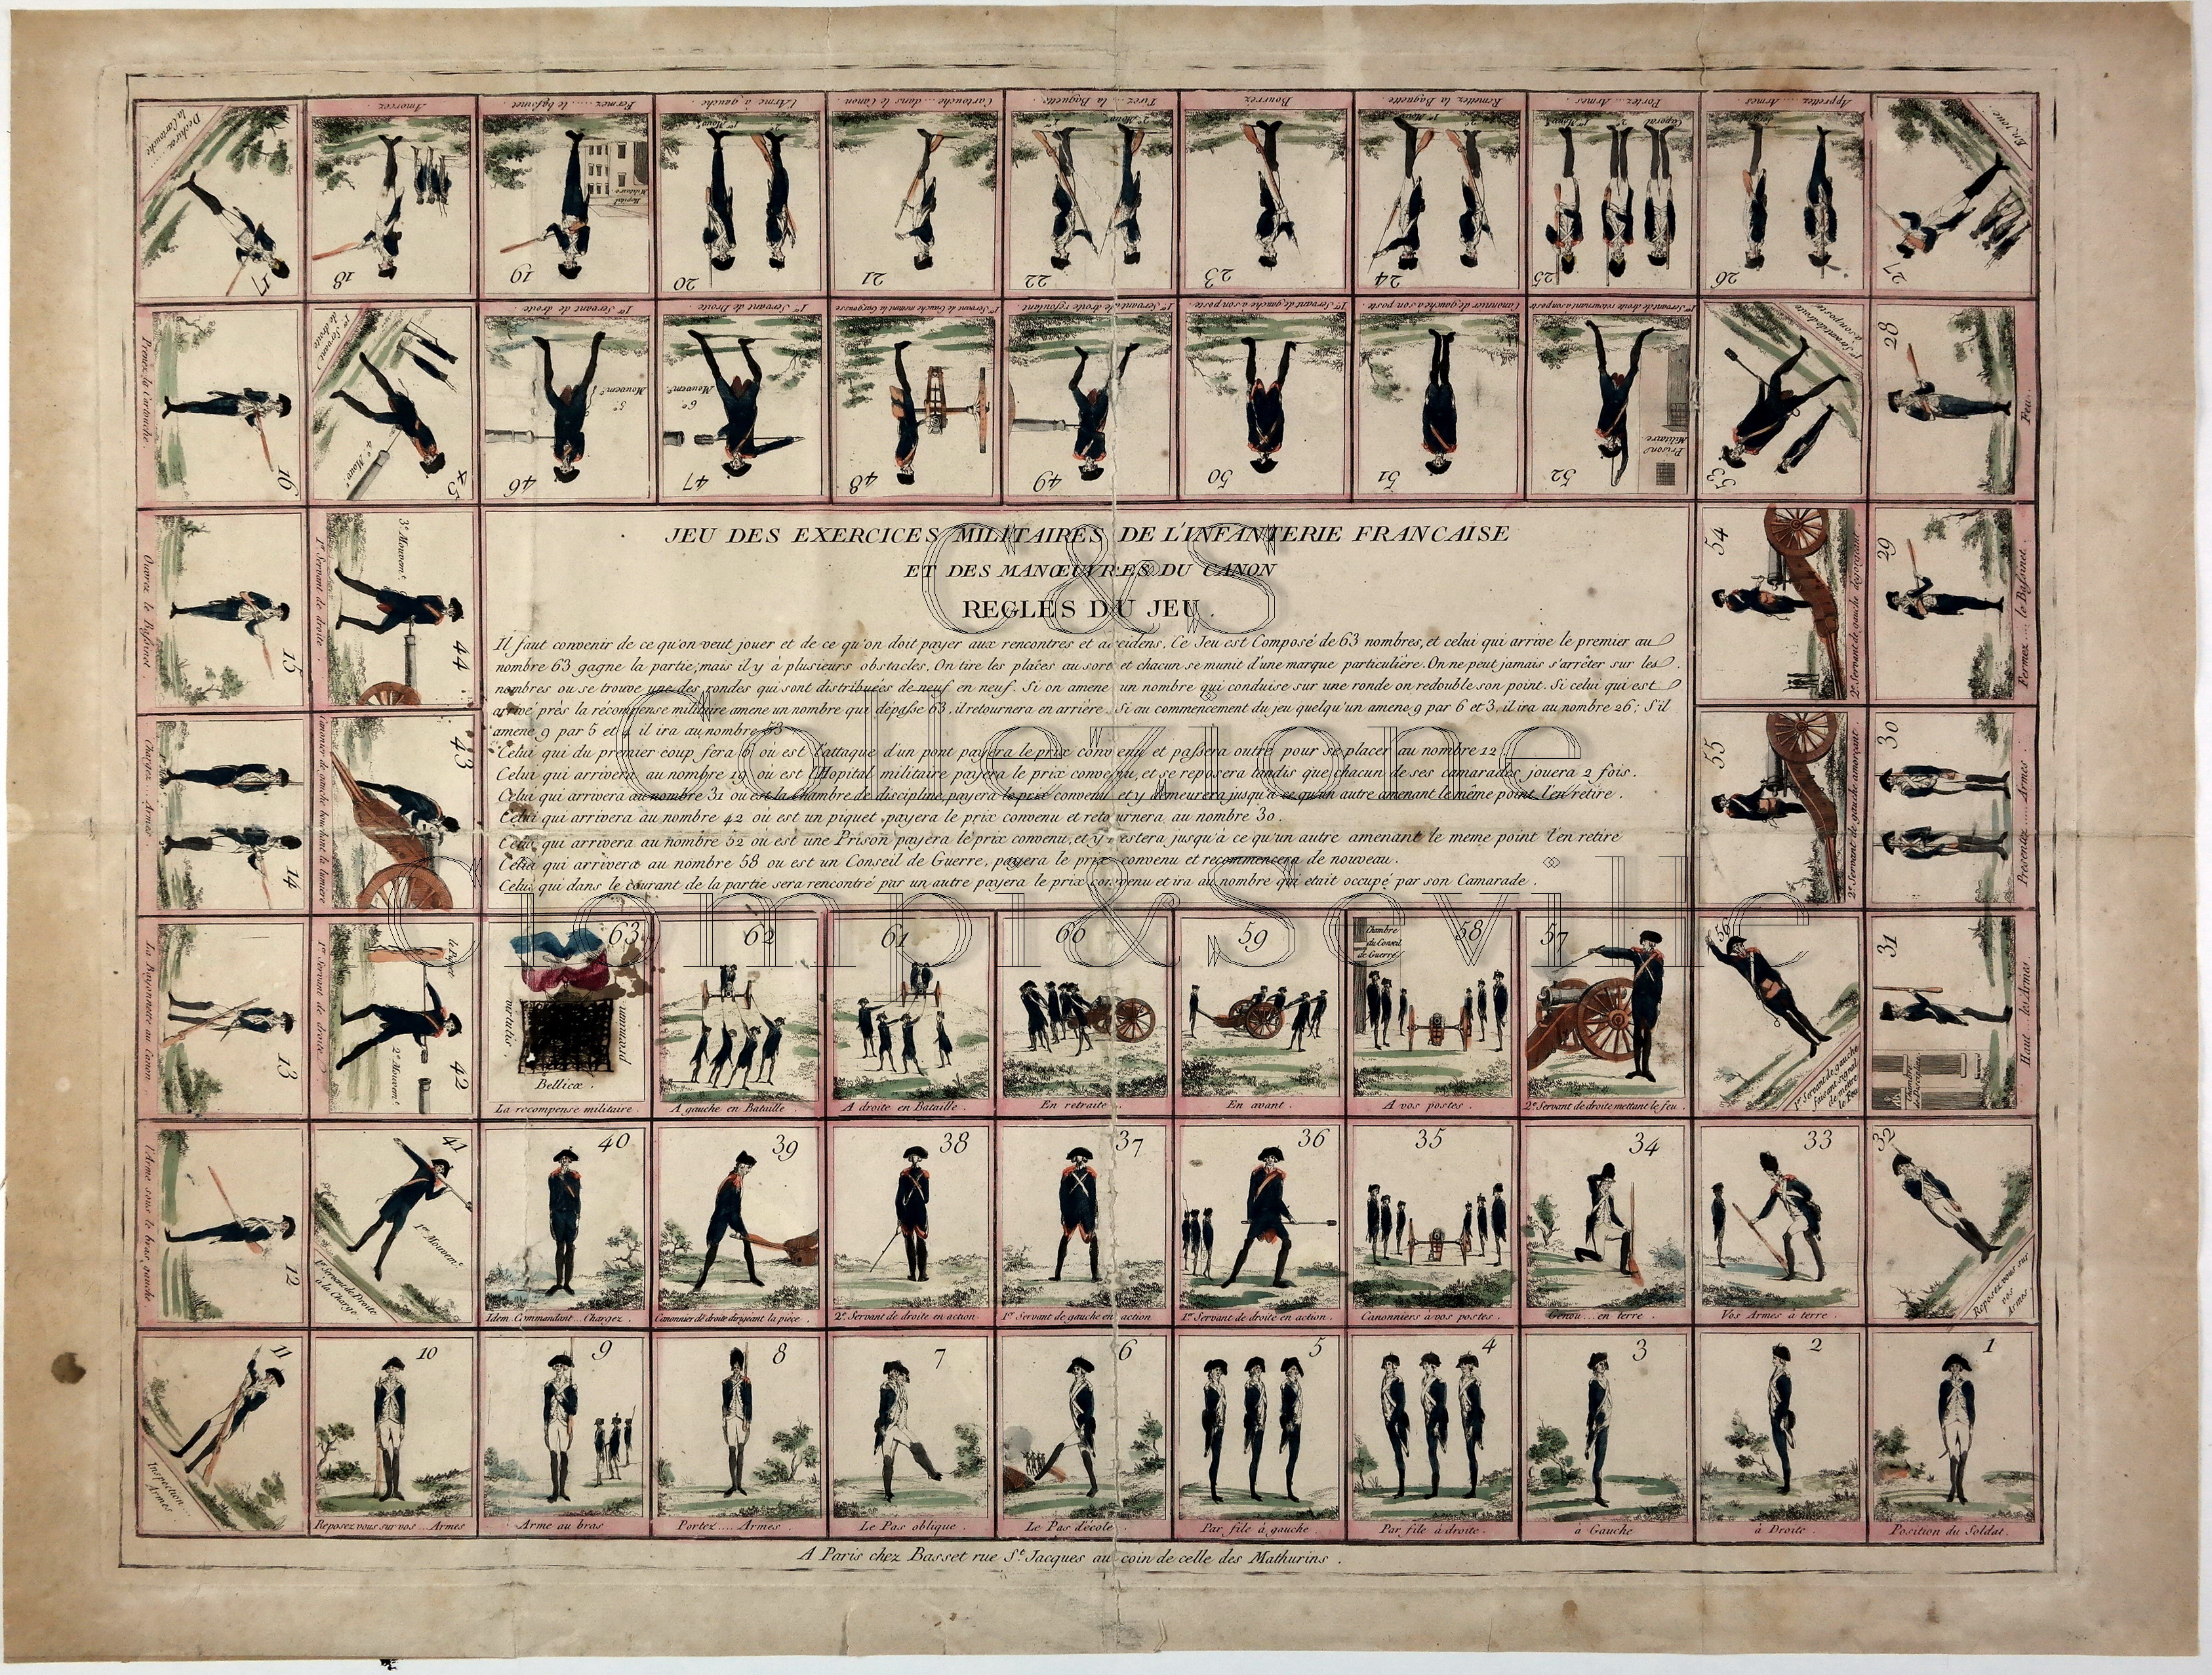 JEU DES EXERCICES MILITAIRES DE L'INFANTERIE FRANCAISE
ET DES MANŒUVRES DU CANON
REGLES DU JEU.
Il faut convenir de ce qu'on veut jouer et de ce qu'on doit payer aux rencontres et accidens. Ce Jeu est Composé de 63 nombres, et celui qui arrive le premier au
nombre 63 gagne la partie, mais il y à plusieurs obstacles. On tire les places au sort et chacun se munit d'une marque particulière. On ne peut jamais s'arrêter sur les
nombres ou se trouve une des rondes qui sont distribuées de neuf en neuf. Si on amene un nombre qui conduise sur une ronde on redouble son point. Si celui qui est
arrivé près la récompense militaire amene un nombre qui dépasse 63, il retournera en arrière. Si au commencement du jeu quelqu'un amene 9 par 6 et 3, il ira au nombre 26; S'il
amene 9 par 5 et 4 il ira au nombre 53
Celui qui du premier coup fera 6 où est l'attaque d'un pont payera le prix convenu et passera outre pour se placer au nombre 12
Celui qui arrivera au nombre 19 où est l'Hopital militaire payera le prix convenu, et se reposera tandis que chacun de ses camarades jouera 2 fois.
Celui qui arrivera au nombre 31 ou est la Chambre de discipline, payera le prix convenu et y demeurera jusqu'à ce qu'un autre amenant le même point l'en retire.
Celui qui arrivera au nombre 42 ou est un piquet, payera le prix convenu et retournera au nombre 30.
Celui qui arrivera au nombre 52 ou est une Prison payera le prix convenu, et y restera jusqu'à ce qu'un autre amenant le meme point l'en retire
Celui qui arrivera au nombre 58 ou est un Conseil de Guerre, payera le prix convenu et recommencera de nouveau.
Celui qui dans le courant de la partie sera rencontré par un autre payera le prix convenu et ira au nombre qui etait occupé par son Camarade.
1
Position du Soldat.
2
à Droite.
3
à Gauche
4
Par file à droite.
5
Par file à gauche.
6
Le Pas d'école.
7
Le Pas oblique.
8
Portez.... Armes.
9
Arme au bras
10
Reposez vous sur vos... Armes
11
Inspection...
Armes
12
l'Arme sous le bras gauche
13
La Bayonnette au Canon
14
Chargez... Armes
15
Ouvrez le Bassinet
16
Prenez la Cartouche
17
Dechirez
la Cartouche
18
Amorcez
19
Hopital
Militaire
Fermez.... le bassinet
20
1er Mouvt
2e
l'Arme à gauche
21
Cartouche... dans le Canon
22
2e Mouvt
Tirez... la Baguette
23
Bourrez
24
1er Mouvt
2e
Remettez la Baguette
25
1er Mouvt
2e
Caporal
Portez... Armes
26
Apprettez... Armes
27
En joue
28
Feu
29
Fermez.... le Bassinet
30
Présentez.... Armes
31
Chambre
de Discipline
Haut... les Armes
32
Reposez vous sur
vos
Armes
33
Vos Armes à terre.
34
Genou... en terre.
35
Canonniers à vos postes.
36
1er Servant de droite en action.
37
1er Servant de gauche en action
38
2e Servant de droite en action
39
Canonnier de droite dirigeant la pièce.
40
Idem Commandant... Chargez.
41
1er Mouvemt
1er Servant de Droite
à la Charge
42
le Piquet
2e Mouvemt
1er Servant de droite
43
Canonier de gauche bouchant la lumière
44
3e Mouvemt
1er Servant de droite
45
4e Mouvt
1er Servant
de droite
46
5e
Mouvemt
1er Servant de droite
47
6e
Mouvemt
1er Servant de Droite
48
1er Servant de Gauche mettant la Gargousse
49
1er Servant de droite refoulant
50
1er Servant de gauche à son poste
51
Canonnier de gauche à son poste
52
Prison
Militaire
1er Servant de droite retournant à son poste
53
1er Servant de droite
à son poste
54
2e Servant de gauche dégorgeant
55
2e Servant de gauche amorçant
56
1er Servant de gauche
faisant signal
de mettre
le Feu
57
2e Servant de droite mettant le feu.
58
Chambre
du Conseil
de Guerre
A vos postes.
59
En avant.
60
En retraite
61
A droite en Bataille.
62
A gauche en Bataille.
63
virtutis
Bellicæ.
La recompense militaire.
A Paris chez Basset rue St Jacques au coin de celle des Mathurins.
C&S
Collezione
Ciompi&Seville